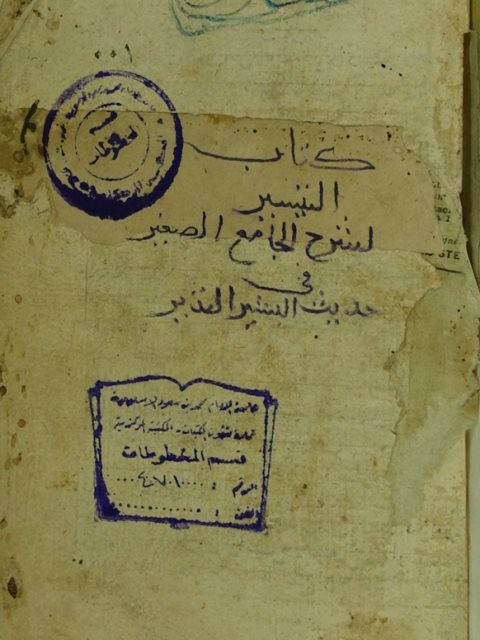 ٠٠١
كتاب
التيسير
لشرح الجامع الصغير
في
حديث البشير النذير
جامعة الإمام محمد بن سعود الإسلامية
عمادة شئون المكتبات - المكتبة المركزية
قسم المخطوطات
الرقم :
الفن :
STE